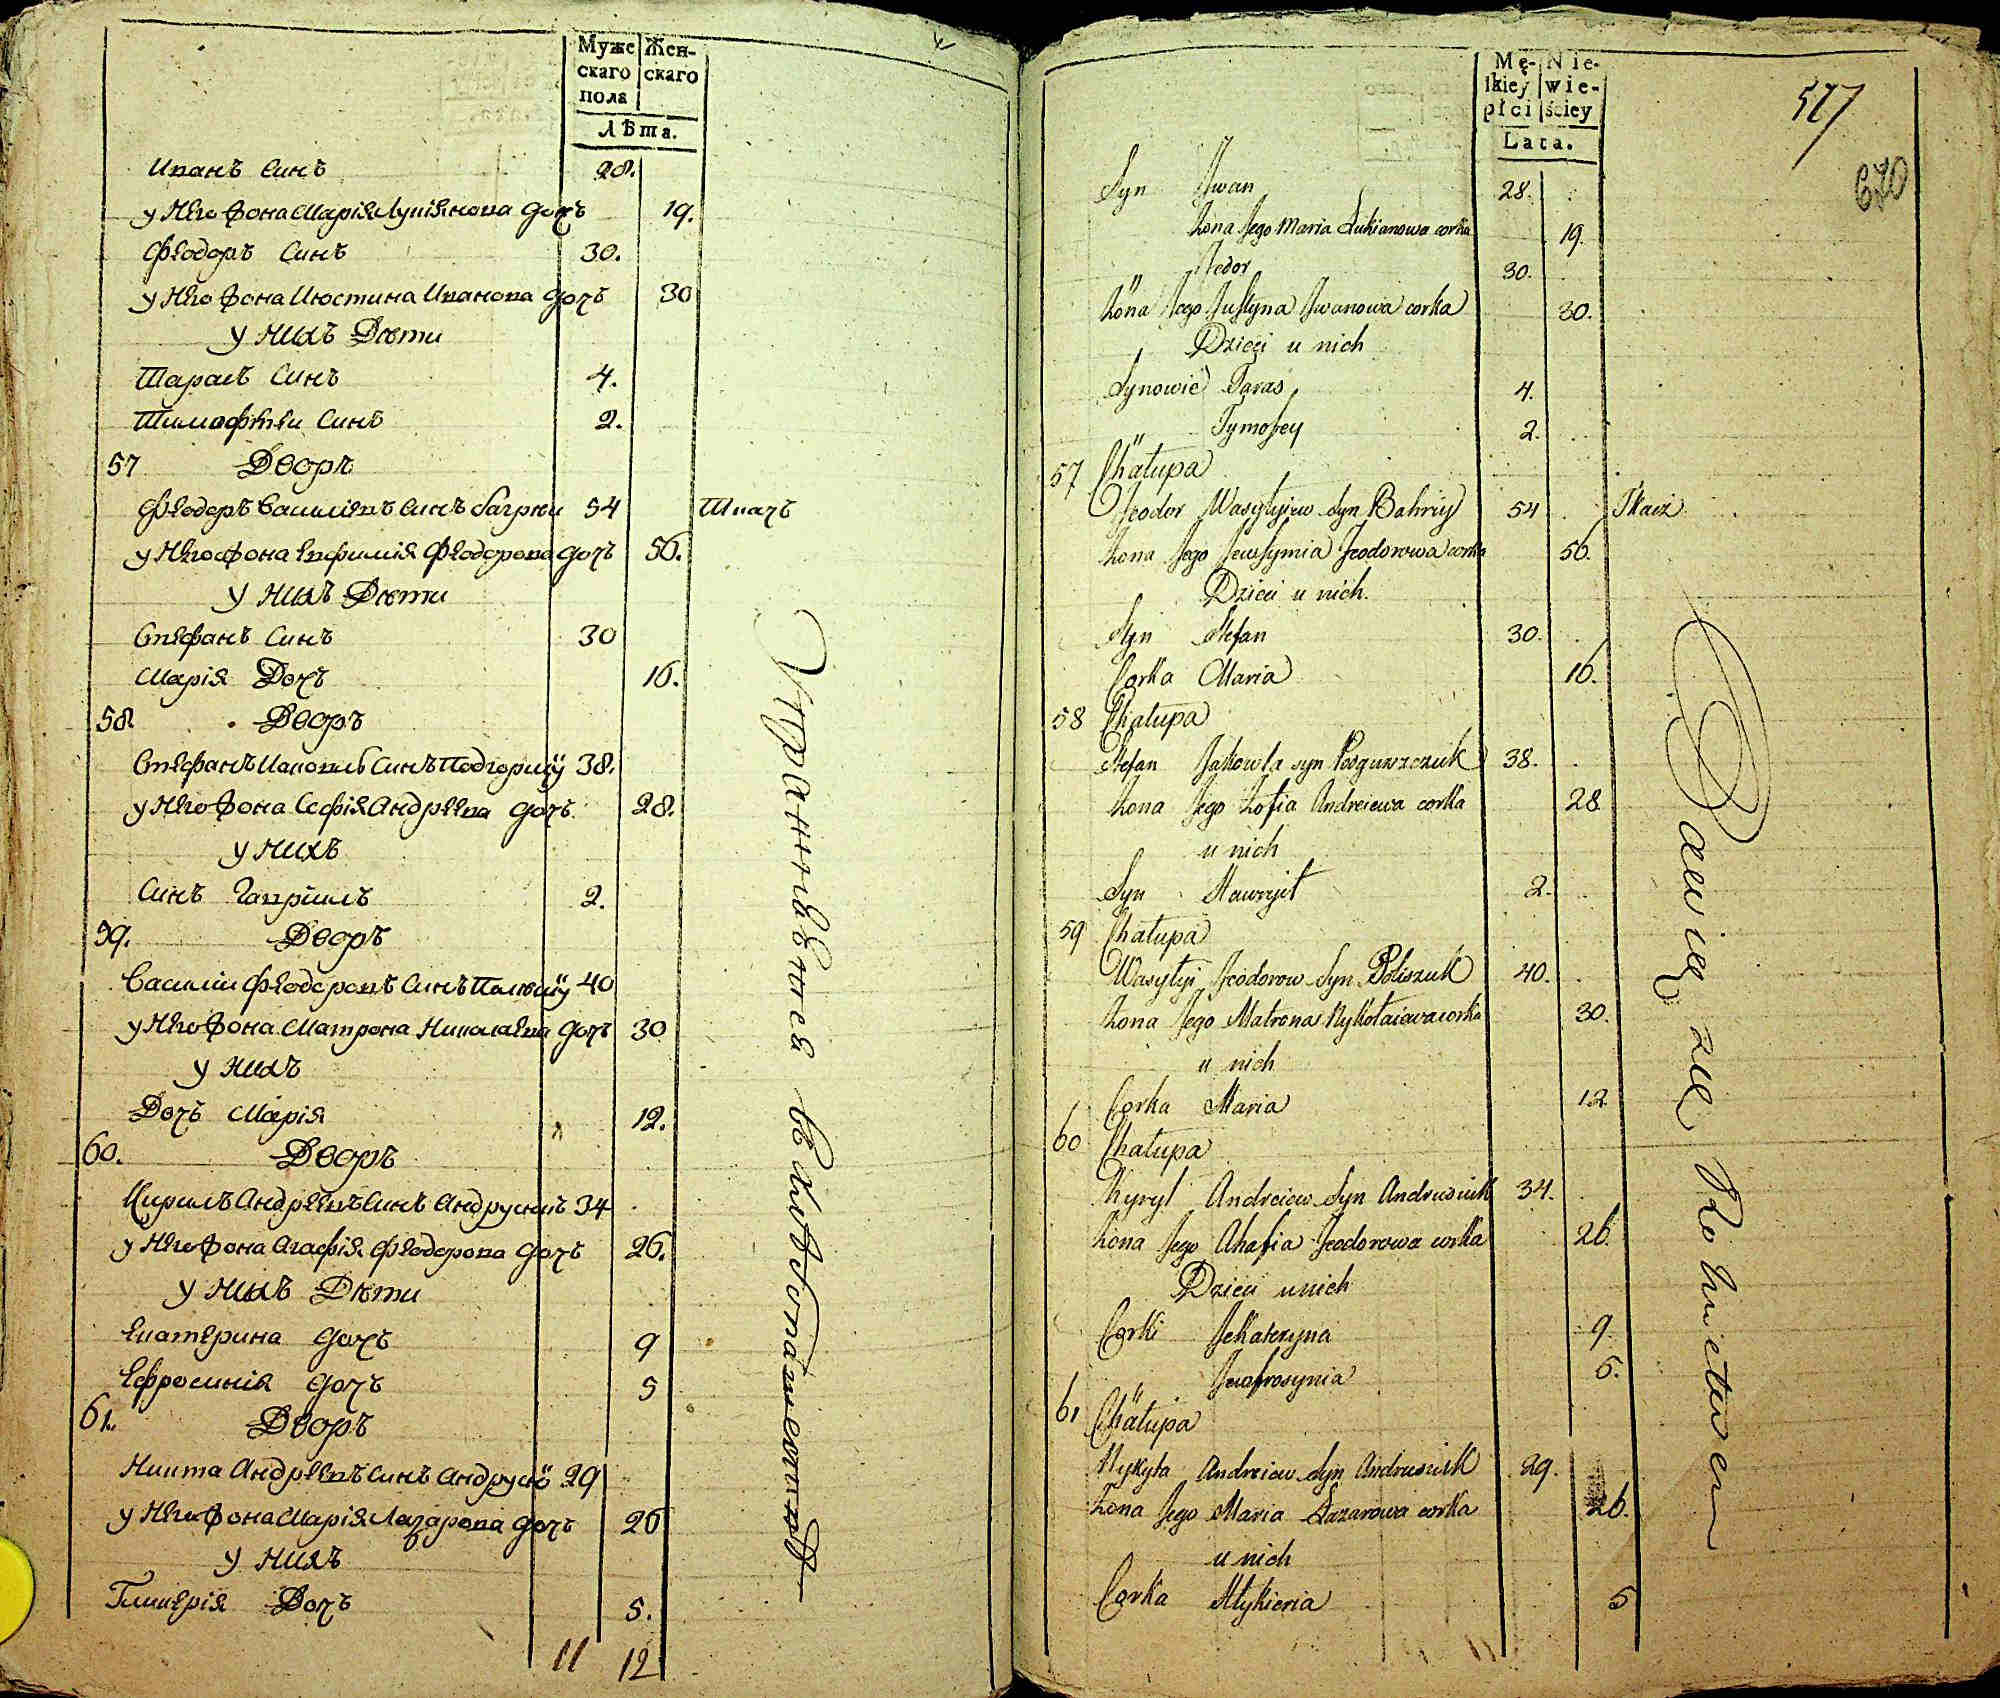 Муже Жен-
скаго скаго
пола
Лѣта.
Иванъ Синъ 28.
у Него Жона Марія Лукіянова дочъ 19.
Феодоръ Синъ 30.
у Него Жона Июстина Иванова дочъ 30
у Нихъ Дѣти
Тарасъ Синъ 4.
Тимофѣи Синъ 2.
57 Дворъ
Феодоръ Василіевъ Синъ Багрии 54 Ткачъ
у Него Жона Евфимія Феодорова дочъ 56.
у Нихъ Дѣти
Стефанъ Синъ 30
Марія Дочъ 16.
58. Дворъ
Стефанъ Яковлъ Синъ 38.
у Него Жона Софія Андреева дочъ 28.
у Нихъ
Синъ Гавріилъ 2.
59. Дворъ
Василии Феодоровъ Синъ 40
у Него Жона Матрона Николаева дочъ 30
у Нихъ
Дочъ Марія 12.
60. Дворъ
Кирилъ Андреевъ Синъ 34
у Него Жона Агафія Феодорова дочъ 26.
у Нихъ Дѣти
Екатерина дочъ 9
Ефросинія дочъ 5
61. Дворъ
Никита Андреевъ Синъ 29
у Него Жона Марія Лазарова дочъ 26
у Нихъ
Гликерія Дочъ 5.
11 12
Mę- Nie-
skiey wie-
płci ściey
Lata.
577
670
Syn Jwan 28.
Żona Jego Maria Łukianowa corka 19.
" Fedor 30.
Żona Jego Justyna Jwanowa corka 30.
Dzieci u nich
Synowie Taras 4.
" Tymofey 2.
57 Chałupa
Feodor Wasylyiew Syn Bahriy 54 Tkacz
Żona Jego Jewfymia Feodorowa corka 56.
Dzieci u nich.
Syn Stefan 30.
Corka Maria 16.
58 Chałupa
Stefan Jakowla syn Podgurszczuk 38.
Żona Jego Zofia Andreiewa corka 28
u nich
Syn Hawryił 2.
59 Chałupa
Wasylyi Feodorow Syn Poliszuk 40.
Żona Jego Matrona Nykołaiewa corka 30.
u nich
Corka Maria 12
60 Chałupa
Kyryl Andreiew Syn Andrusiuk 34.
Żona Jego Ahafia Feodorowa corka 26.
Dzieci u nich
Corki Jekateryna 9.
Jewfrosynia 5.
61 Chałupa
Nykyta Andreiew Syn Andrusiuk 29.
Żona Jego Maria Łazarowa corka 26.
u nich
Corka Hłykieria 5